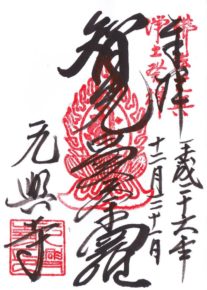 奉拝
平成二十六年
十二月二十一日
智光曼荼羅
元興寺